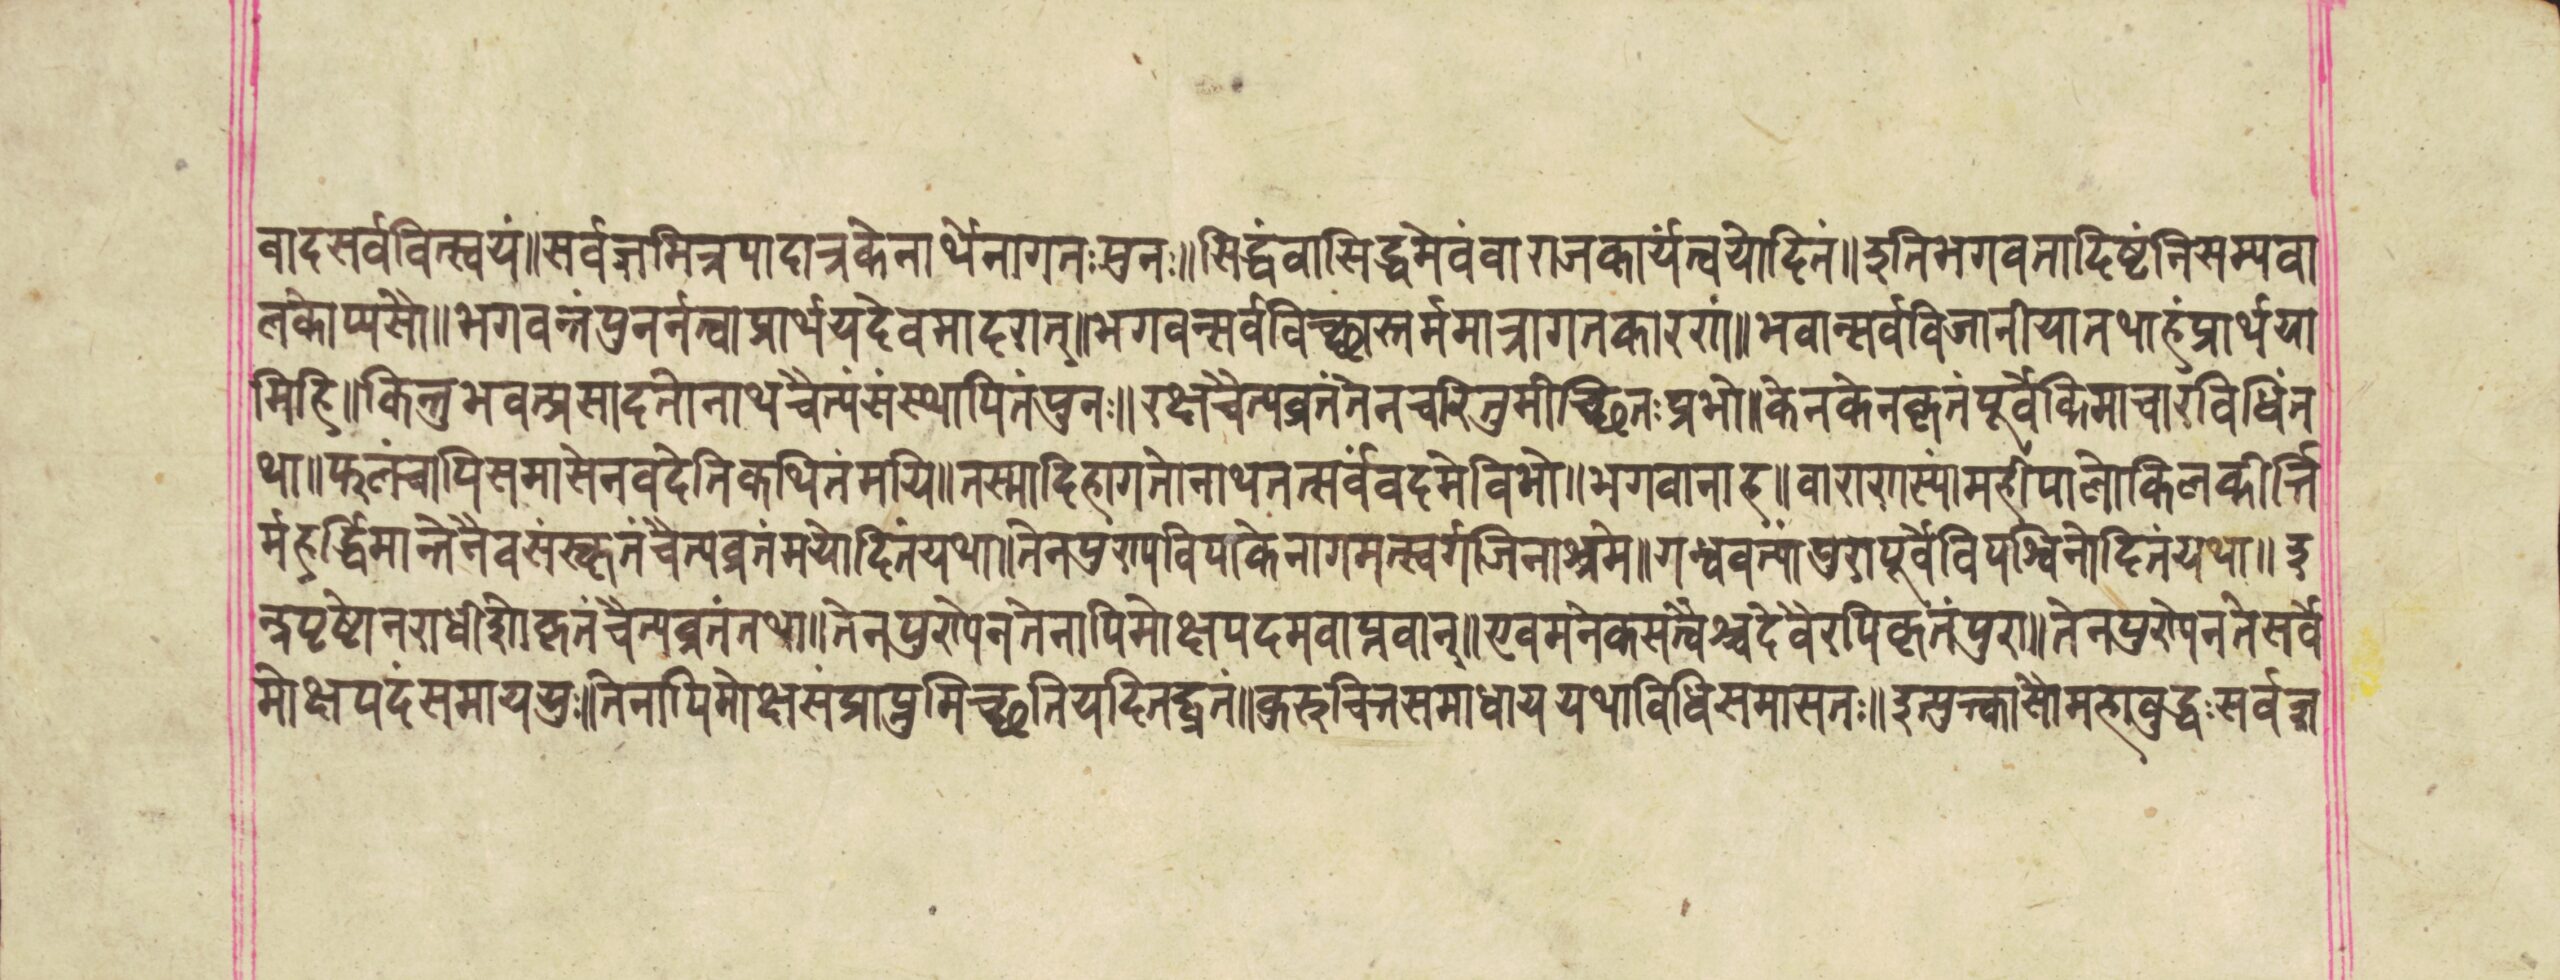 वादसर्ववित्स्वयं॥सर्वज्ञमित्रपादात्रकेनार्थेनागतःपुनः॥सिद्धंवासिद्धमेवंवाराजकार्यंत्वयोदितं॥इतिभगवतादिष्टंनिसम्यवा
लकोप्यसौ॥भगवन्तंपुनर्नत्वाप्रार्थयदेवमादरात्॥भगवन्सर्वविच्छास्तर्ममात्रागतकारणं॥भवान्सर्वविजानीयातथाहंप्रार्थया
मिहि॥किन्तुभवत्प्रसादतोनाथचैत्यंसंस्थापितंपुनः॥लक्षचैत्यव्रतंतेनचरितुमीच्छितःप्रभो॥केनकेनकृतंपूर्वंकिमाचारंविधिंत
था॥फलंचापिसमासेनवदेतिकथितंमयि॥तस्मादिहागतोनाथतत्सर्वंवदमेविभो॥भगवानाह॥वाराणस्यांमहीपालोकिलकीर्त्ति
र्महर्द्धिमान्तेनैवसंस्कृतंचैत्यव्रतंमयोदितंयथा॥तेनपुण्यविपाकेनागमत्स्वर्गजिनाश्रमे॥गन्धवत्यांपुरापूर्वेविपश्विनोदितंयथा॥इ
न्द्रपृष्टोनराधीशोकृतंचैत्यव्रतंतथा॥तेनपुण्येनतेनापिमोक्षपदमवाप्नवान्॥एवमनेकसत्वैश्चदेवैरपिकृतंपुरा॥तेनपुण्येनतेसर्वे
मोक्षपदंसमाययुः॥तेनापिमोक्षसंप्राप्तुमिच्छतियदितद्व्रतं॥कुरुचित्तसमाधाययथाविधिसमासतः॥इत्युक्त्वासौमहाबुद्धःसर्वज्ञ